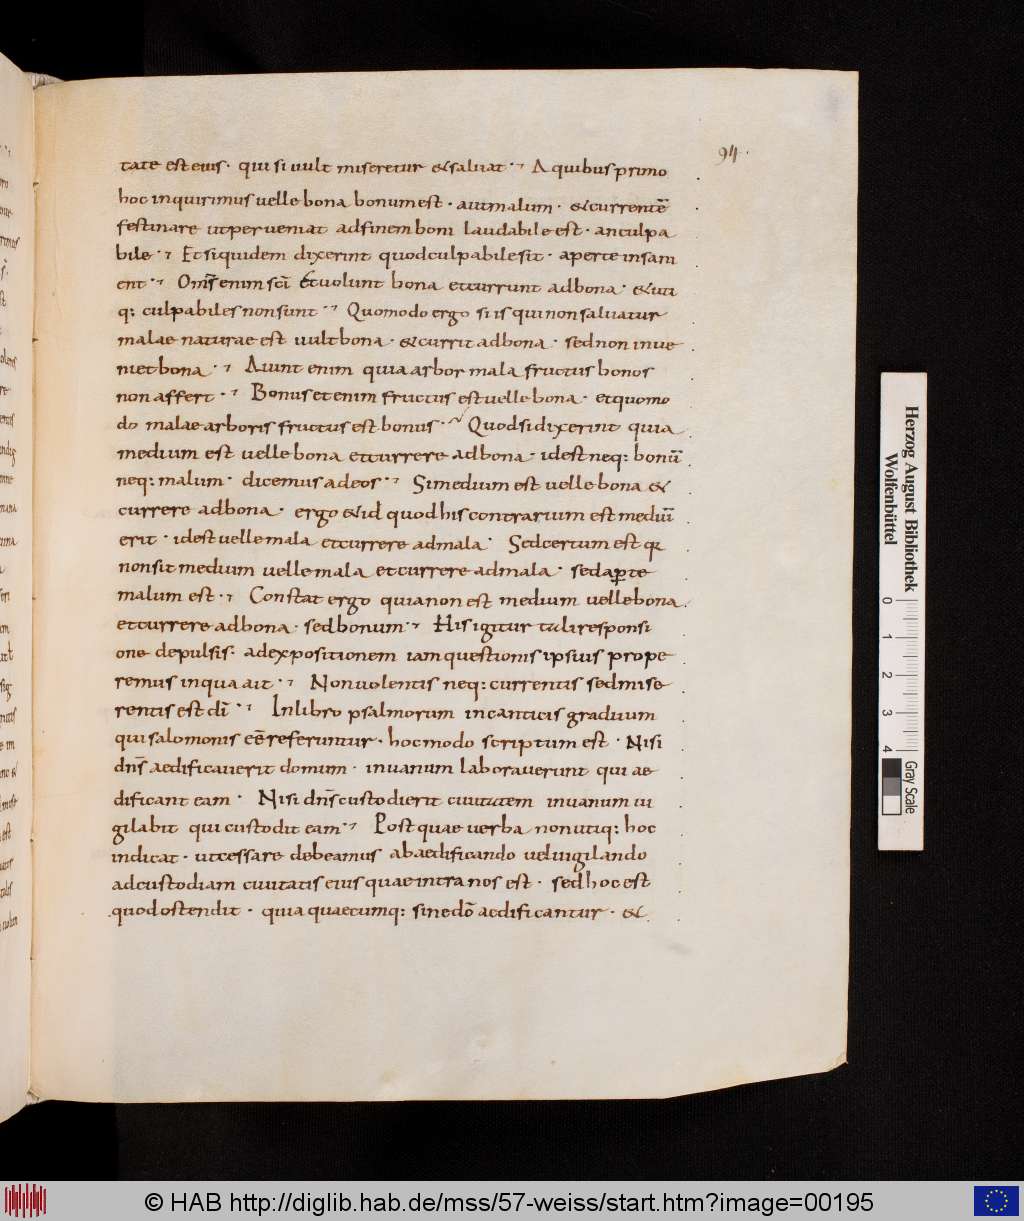 94.
tate est eius · qui si uult miseretur & saluat · A quibus primo
hoc inquirimus uelle bona bonum est · aut malum · & currentē
festinare ut perueniat ad finem boni laudabile est · an culpa
bile · Et siquidem dixerint quod culpabile sit · aperte insani
ent · Om̄s enim sc̄i Et uolunt bona et currunt ad bona · & uti
q: culpabiles non sunt · Quomodo ergo si is qui non saluatur
malae naturae est uult bona · & currit ad bona · sed non inue
niet bona · Aiunt enim quia arbor mala fructus bonos
non affert · Bonus etenim fructus est uelle bona · et quomo
do malae arboris fructus est bonus · Quod si dixerint quia
medium est uelle bona et currere ad bona · id est neq: bonū
neq: malum · dicemus ad eos · Si medium est uelle bona &
currere ad bona · ergo & id quod his contrarium est mediū
erit · id est uelle mala et currere ad mala · Sed certum est qꝛ
non sit medium uelle mala et currere ad mala · sed aꝑte
malum est · Constat ergo quia non est medium uelle bona
et currere ad bona · sed bonum · His igitur tali responsi
one depulsis · ad expositionem iam questionis ipsius prope
remus in qua ait · Non uolentis neq: currentis sed mise
rentis est dī · In libro psalmorum in canticis graduum
qui salomonis eē referuntur · hoc modo scriptum est · Nisi
dn̄s aedificauerit domum · in uanum laborauerunt qui ae
dificant eam · Nisi dn̄s custodierit ciuitatem in uanum ui
gilabit qui custodit eam · Post quae uerba non utiq: hoc
indicat · ut cessare debeamus ab aedificando uel uigilando
ad custodiam ciuitatis eius quae intra nos est · sed hoc est
quod ostendit · quia quaecumq: sine dō aedificantur · &
Herzog August Bibliothek
Wolfenbüttel
0 1 2 3 4
Gray Scale
© HAB http://diglib.hab.de/mss/57-weiss/start.htm?image=00195